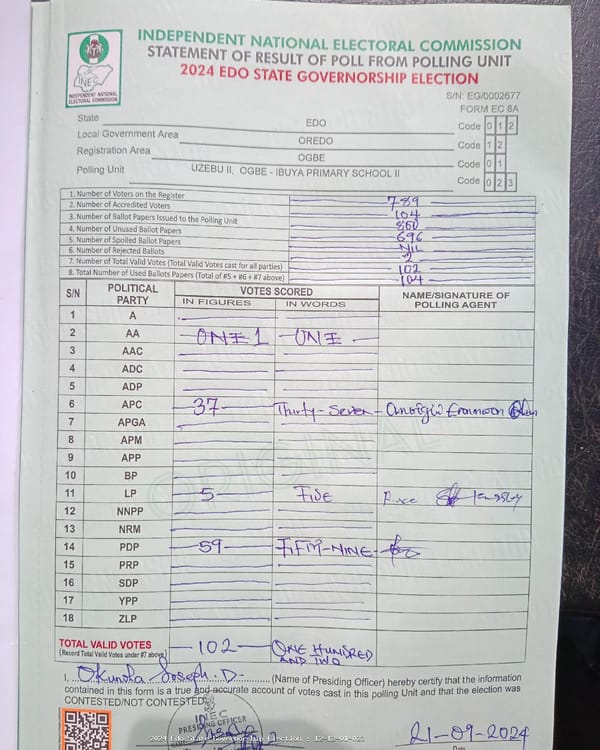 INDEPENDENT NATIONAL ELECTORAL COMMISSION
STATEMENT OF RESULT OF POLL FROM POLLING UNIT
2024 EDO STATE GOVERNORSHIP ELECTION
INEC
INDEPENDENT NATIONAL
ELECTORAL COMMISSION
S/N: EG/0002677
FORM EC 8A
State EDO Code 0 1 2
Local Government Area OREDO Code 1 2
Registration Area OGBE Code 0 1
Polling Unit UZEBU II, OGBE - IBUYA PRIMARY SCHOOL II Code 0 2 3
1. Number of Voters on the Register 789
2. Number of Accredited Voters 104
3. Number of Ballot Papers Issued to the Polling Unit 800
4. Number of Unused Ballot Papers 696
5. Number of Spoiled Ballot Papers NIL
6. Number of Rejected Ballots 2
7. Number of Total Valid Votes (Total Valid Votes cast for all parties) 102
8. Total Number of Used Ballots Papers (Total of #5 + #6 + #7 above) 104
S/N POLITICAL PARTY VOTES SCORED NAME/SIGNATURE OF POLLING AGENT
IN FIGURES IN WORDS
1 A
2 AA ONE 1 ONE
3 AAC
4 ADC
5 ADP
6 APC 37 Thirty-Seven
7 APGA
8 APM
9 APP
10 BP
11 LP 5 FIVE
12 NNPP
13 NRM
14 PDP 59 FIFTY-NINE
15 PRP
16 SDP
17 YPP
18 ZLP
ORIGINAL
TOTAL VALID VOTES 102 ONE HUNDRED
(Record Total Valid Votes under #7 above) AND TWO
I, Joseph .D. (Name of Presiding Officer) hereby certify that the information
contained in this form is a true and accurate account of votes cast in this polling Unit and that the election was
CONTESTED/NOT CONTESTED
INEC
PRESIDING OFFICER
21-09-2024
2024 Edo State Governorship Election : 12-12-01-023
Date